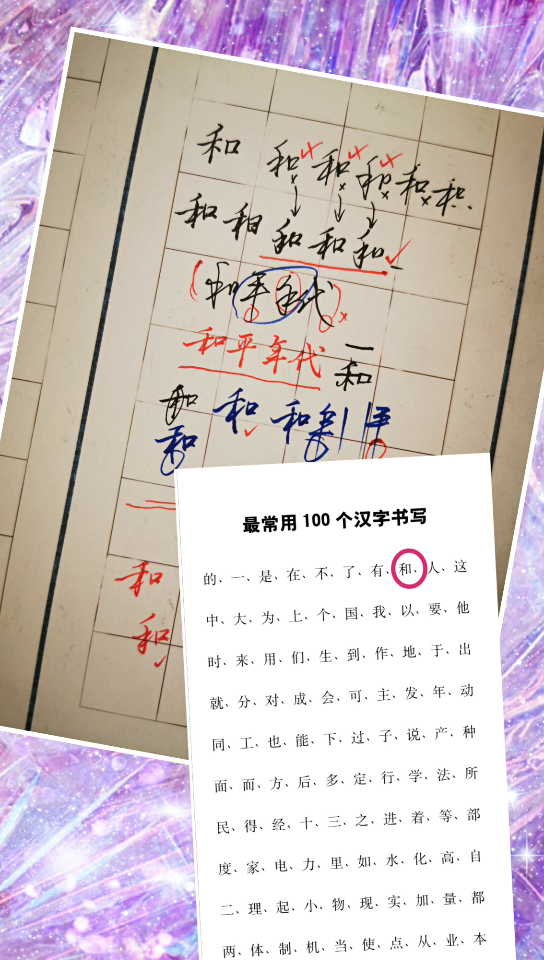 和 和 和 和 和 和
和 和 和 和 和
和平年代
和平年代
一
和
和 和 和
和
和
和
最常用100个汉字书写
的、一、是、在、不、了、有、和、人、这
中、大、为、上、个、国、我、以、要、他
时、来、用、们、生、到、作、地、于、出
就、分、对、成、会、可、主、发、年、动
同、工、也、能、下、过、子、说、产、种
面、而、方、后、多、定、行、学、法、所
民、得、经、十、三、之、进、着、等、部
度、家、电、力、里、如、水、化、高、自
二、理、起、小、物、现、实、加、量、都
两、体、制、机、当、使、点、从、业、本